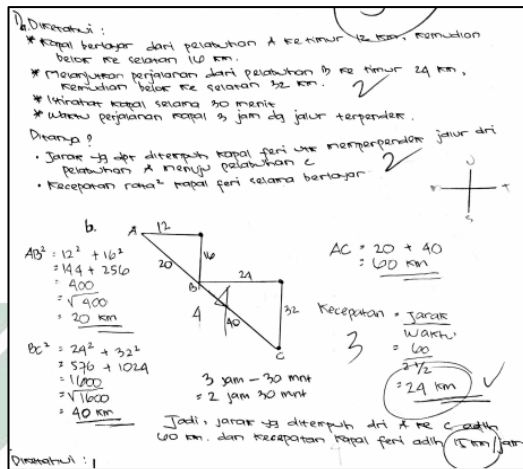 1. a. Diketahui :
* Kapal berlayar dari pelabuhan A ke timur 12 km, kemudian
belok ke selatan 16 km.
* Melanjutkan perjalanan dari pelabuhan B ke timur 24 km,
kemudian belok ke selatan 32 km.
2
* Istirahat kapal selama 30 menit
* Waktu perjalanan kapal 3 jam dg jalur terpendek.
Ditanya ?
• Jarak yg dpt ditempuh kapal feri utk memperpendek jalur dri
pelabuhan A menuju pelabuhan C
2
• Kecepatan rata² kapal feri selama berlayar
U
T
S
b.
A 12
16
20
B 24
32
40
4
C
AB² = 12² + 16²
= 144 + 256
= 400
= √400
= 20 km
BC² = 24² + 32²
= 576 + 1024
= 1600
= √1600
= 40 km
3 jam - 30 mnt
= 2 jam 30 mnt
AC = 20 + 40
= 60 km
Kecepatan = Jarak
Waktu
3
= 60
2 1/2
= 24 km ✓
Jadi, jarak yg ditempuh dri A ke C adlh
60 km. dan kecepatan kapal feri adlh 15 km/jam
Diketahui :